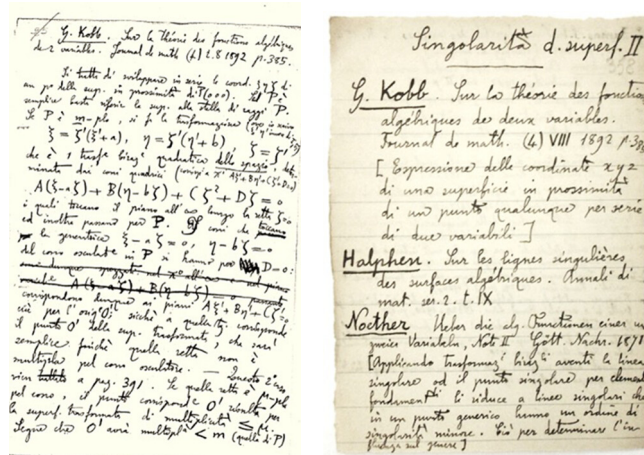 G. Kobb. Sur la théorie des fonctions algébriques
de 2 variables. Journal de math (4) t.8 1892 p.385.
Si tratta di sviluppare in serie le coord. xyz di
un po della sup. in prossimità di
semplice basta riferire la sup. alla stella di raggi P.
Se P è m-plo, si fa la trasformazione
ξ = ζ'(ξ'+a), η = ζ'(η'+b) ζ = ζ'
che è 1 trasfz biraz quadratica dello spazio, deter-
minata dai coni quadrici
A(ξ-aζ) + B(η-bζ) + Cζ² + Dζ = 0
i quali toccano il piano all'∞ lungo la retta ζ=0
ed inoltre passano per P. Gli coni che toccano
la generatrice ξ-aζ=0, η-bζ=0
del cono osculatore in P si hanno per D=0:
A(ξ-aζ) + B(η-bζ) = 0
corrispondono dunque ai piani Aξ'+Bη'+Cζ'=0
cioè per l'orig O'. Sicchè a quella retta corrisponde
il punto O' della sup. trasformata, che sarà
semplice finchè quella retta non è
multipla pel cono osculatore. — Questo è
a pag. 391. Se quella retta è
pel cono, il punto corrispondte O' risulta per
la superf. trasformata di multiplicità ≤ μ.
Segue che O' avrà multiplà < m (quella di P)
Singolarità d. superf. II
G. Kobb. Sur la théorie des fonctions
algébriques de deux variables.
Journal de math. (4) VIII 1892 p.385
[Espressione delle coordinate x y z
di una superficie in prossimità
di un punto qualunque per serie
di due variabili]
Halphen. Sur les lignes singulières
des surfaces algébriques. Annali di
mat. ser. 2. t. IX
Noether Ueber die alg. Functionen einer u.
zweier Variabeln, Not II Gött. Nachr. 1871
[Applicando trasformaz biraz aventi la linea
singolare od il punto singolare per elementi
fondament li riduce a linee singolari che
in un punto generico hanno un ordine di
singolarità minore. Ciò per determinare l'in-
fluenza sul genere]